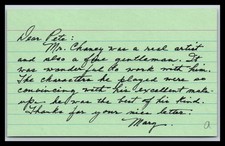 Dear Pete:
Mr. Chaney was a real artist
and also a fine gentleman. It
was wonderful to work with him.
The characters he played were so
convincing with his excellent make-
up - he was the best of his kind.
Thanks for your nice letter.
Mary